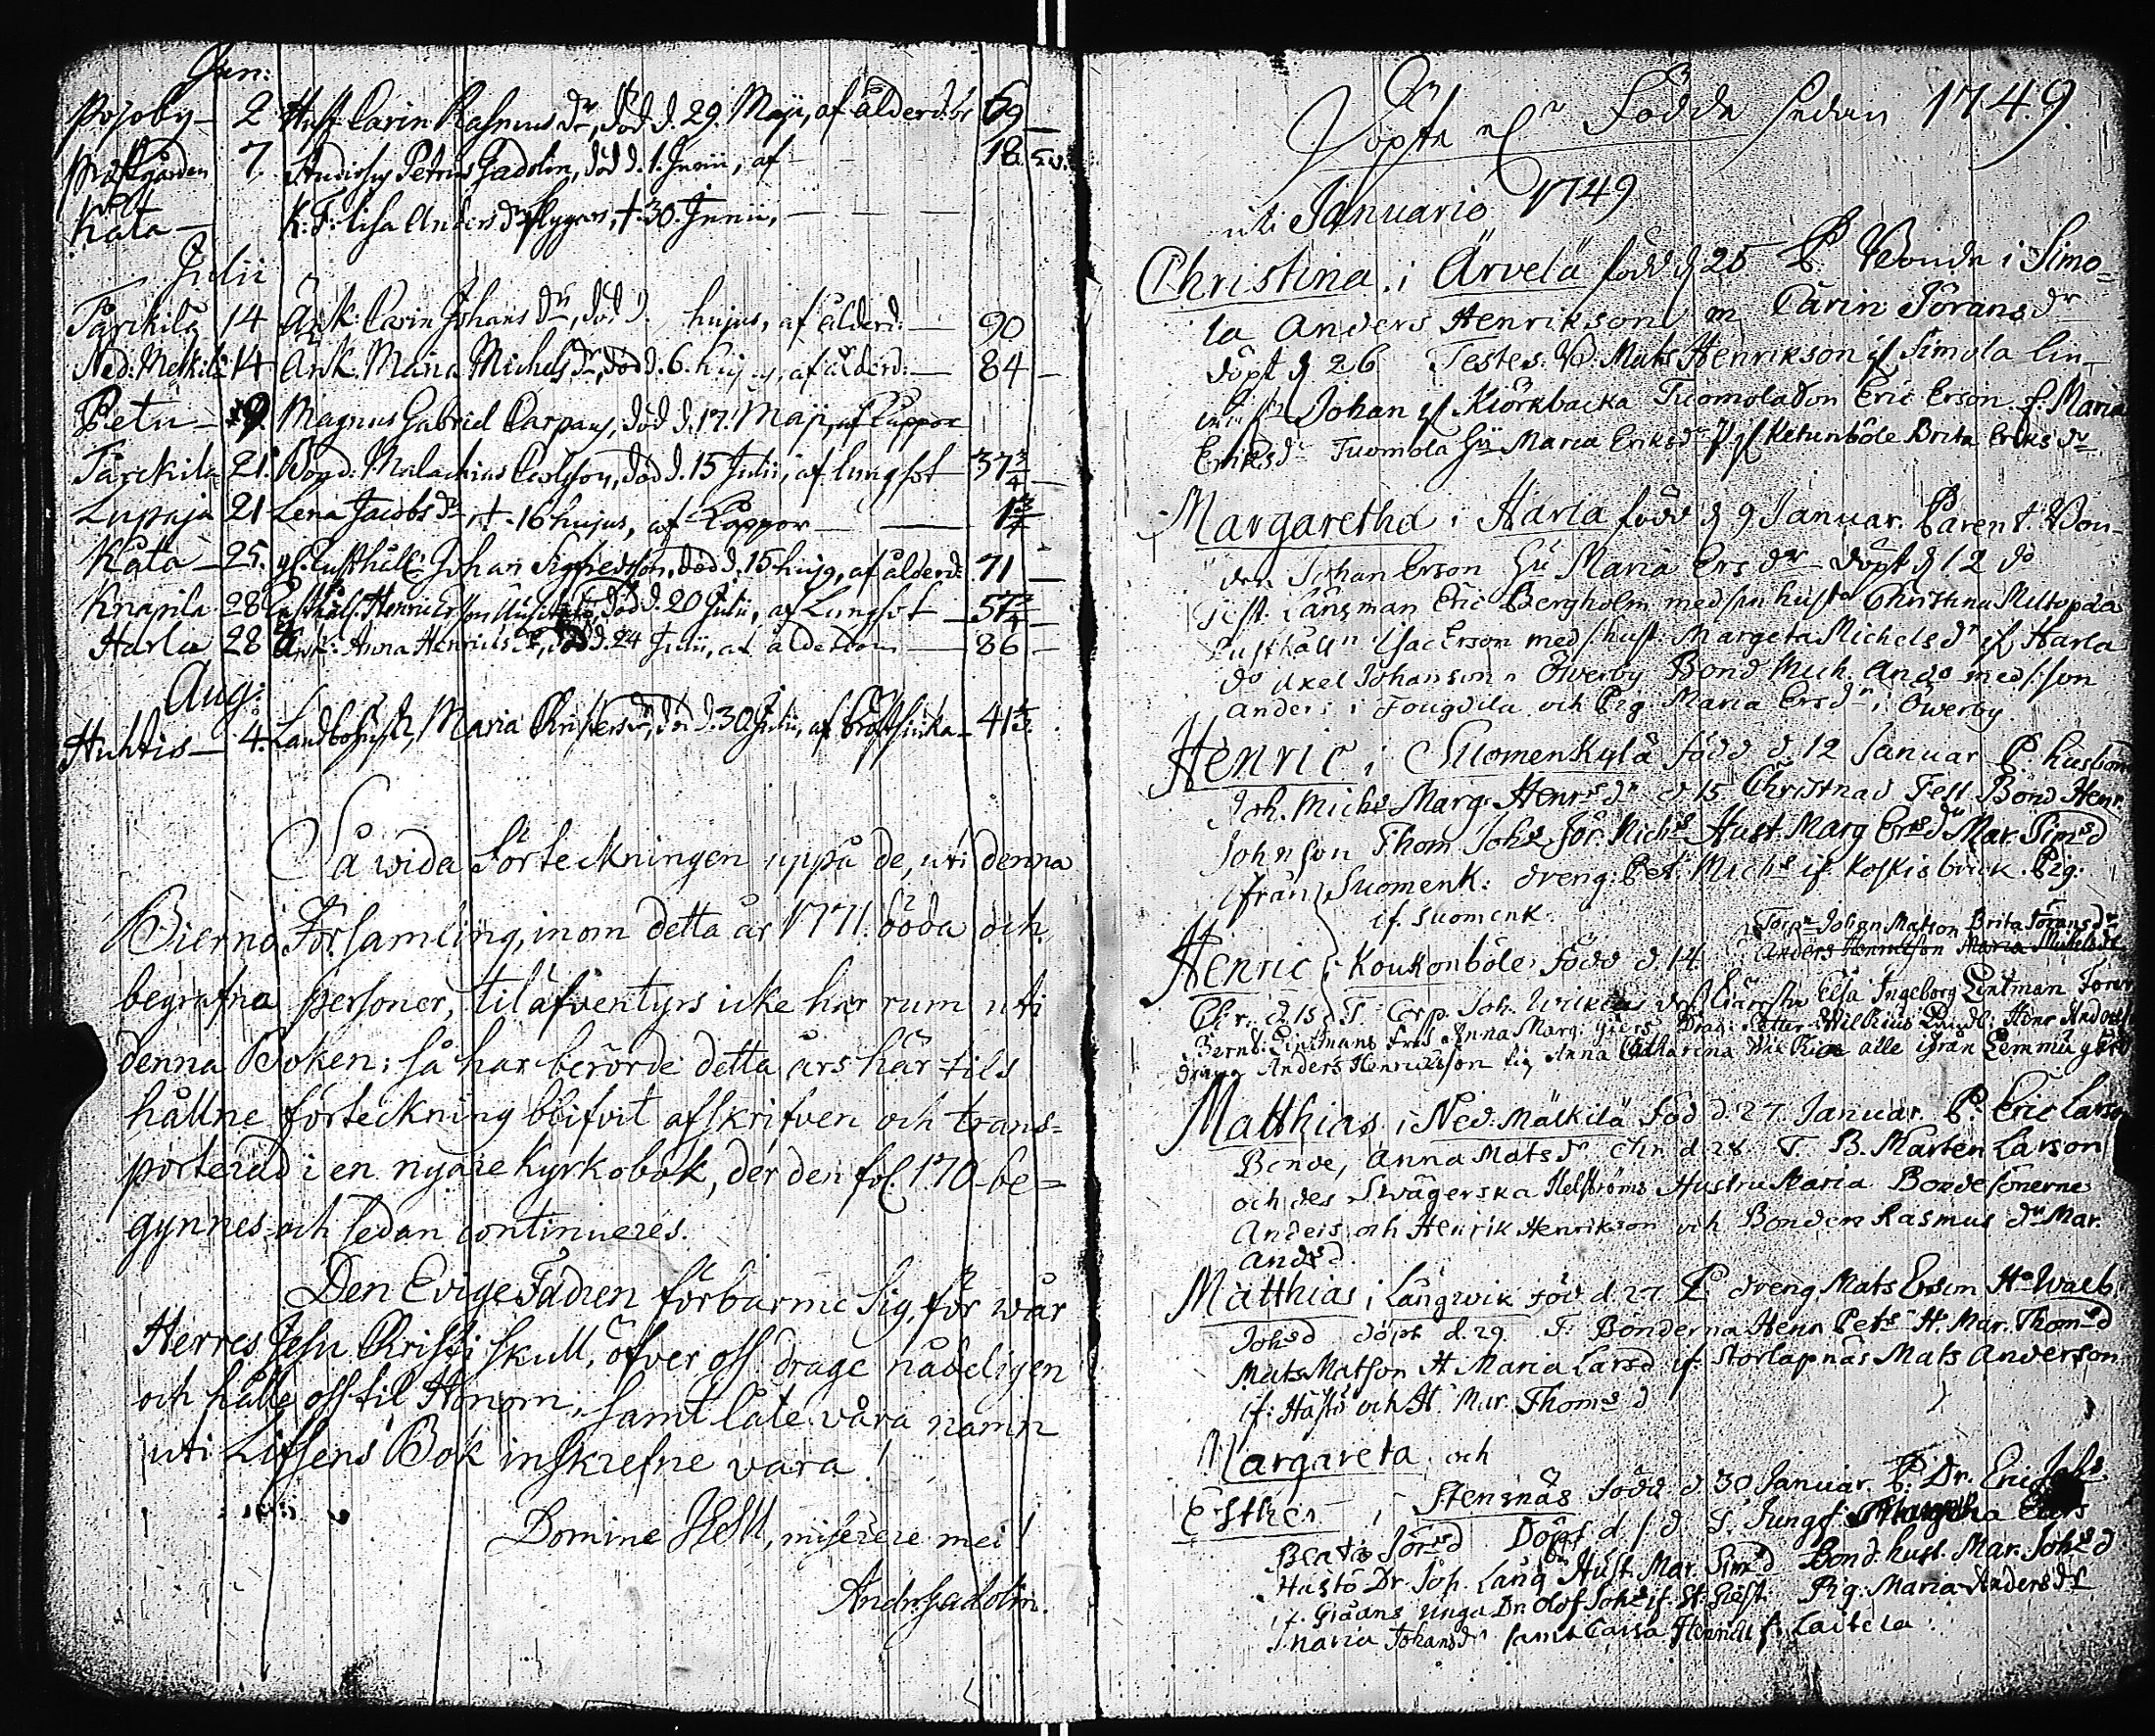 Jun:
Pojoby - 2 Hust. Carin Rasmus dr, död d. 29. Maji, af ålderd. 69 -
Prästgården 7. Studiosus Petrus Gadolin, död d. 1. Junii, af - - 18
Kåta - K. F. Lisa Anders dr flygare, † 30. Junii, - - -
Julii
Tärckilä 14 Änk: Carin Johans dr, död d. hujus, af ålderd. - 90
Ned: Melkilä 14 Änk. Maria Michels dr, död d. 6. hujus, af ålderd: - 84 -
Petu - 19. Magnus Gabriel Carpaus, död d. 17. Maji, af kåppor
Tärckilä 21. Bond: Malachias Carlsson, död d. 15 Julii, af lungsot - 37 3/4 -
Lupaja 21 Lena Jacobs dr, † 16 hujus, af kåppor - 1 3/4
Kåta - 25. gl. Rusthåll: Johan Sigfredsson, död d. 15 hujus, af ålderd: 71 -
Knapila 28 Rusthåll. Henric Ersson död d. 20 Julii, af Lungsot - 57 3/4 -
Harla 28 Änk: Anna Henrics dr, död d. 24 Julii, af ålderdom - 86 -
Aug:
Huhtis - 4. Landbohust. Maria Christers dr, död d. 30 Julii, af bröstsiuka - 41 1/2.
Så wida förteckningen uppå de, uti denna
Bierno Församling, inom detta år 1771. döda och
begrafna personer, til äfventyrs icke har rum uti
denna Boken: så har berörde detta års här tils
hållne förteckning blifvit afskrifven och trans=
porterad i en nyare kyrkobok, der den fol. 170 be=
gynnes och sedan continueres.
Den Evige Fadren förbarme sig, för wår
Herres Jesu Christi skull, öfver oss, drage nådeligen
och hålle oss til Honom, samt låte våra namn
uti Lifsens Bok inskrefne vara!
Domine JESU, miserere mei!
Andr. Gadolin.
Döpte och Födde sedan 1749.
uti Januario 1749
Christina i Ärvelä född d 25 P. Bonde i Simo=
la Anders Henrikson m Carin Jörans dr
döpt d 26 Testes. B. Mats Henrikson if Simola
Johan if Kiörkbacka Tuomola Son Eric Erson. f. Maria
Eriks dr Tuomola Hu Maria Eriks dr if Ketunböle Brita Eriks dr
Margaretha i Harla född d 9 Januar. Parent. Bon-
den Johan Erson Hu Maria Ers dr döpt d 12 do
Test. Länsman Eric Bergholm med sin hustr Christina Miltopæa
Rusthålln Isac Erson med s: hust. Margeta Michels dr if Harla
do Axel Johanson i Öwerby Bond Mich. Ands med s: son
Anders i Fougdila och Pig Maria Ers dr i Öwerby
Henric i Suomenkylä född d 12 Januar P. husbond
Joh. Michs Marg. Henrs dr d 15 Christnad Test Bond Henr.
Johnson Thom Johs Jör. Michs Hust. Marg Ers dr Mar. Sims d
från Suomenk: dreng: Pet: Michs if. Koskisbrick. Pig.
if. Suomenk.
Henric i Koukonböle född d. 14. Torp Johan Matson Brita Jörans dr
Anders Henricson Maria Michels dr
Chr. d. 15 T. Corp. Joh. Wilkius Elsa Ingeborg Lintman
Bernd. Lintmans Anna Marg: Giers Drag: Petter Wilkius Henr Anders
dräng Anders Henricsson pig Anna Catharina Wilkia alle ifrån Lemmu gård
Matthias i Ned. Mälkilä föd d. 27 Januar. P. Eric Larson
Bonde, Anna Mats dr chr. d. 28 T. B. Mårten Larson
och des Swägerska Helströms Hustru Maria Bondesönerne
Anders och Henrik Henrikson och Bonden Rasmus dr Mar.
Ands d.
Matthias i Långwik föd d 27 P. dreng Mats Ersson Hu Walb.
Johs d döpt d. 29 T: Bönderna Henr Pets H. Mar. Thoms d
Mats Matson H Maria Lars d if: Storlapnäs Mats Anderson
if: Hästö och H Mar. Thoms d
Margareta och
Esther i Stensnäs född d 30 Januar. P. Dr. Eric Johs
Beata Jörs d Döpt d 1 d T. Jungf
Hästö Dr. Joh. Lång Hust. Mar. Sims d Bond. hust. Mar. Johs d
if. unga Dr. Olof Johs if. St. Giest. Pig. Maria Anders dr
Maria Johans dr samt Caisa Laitela.